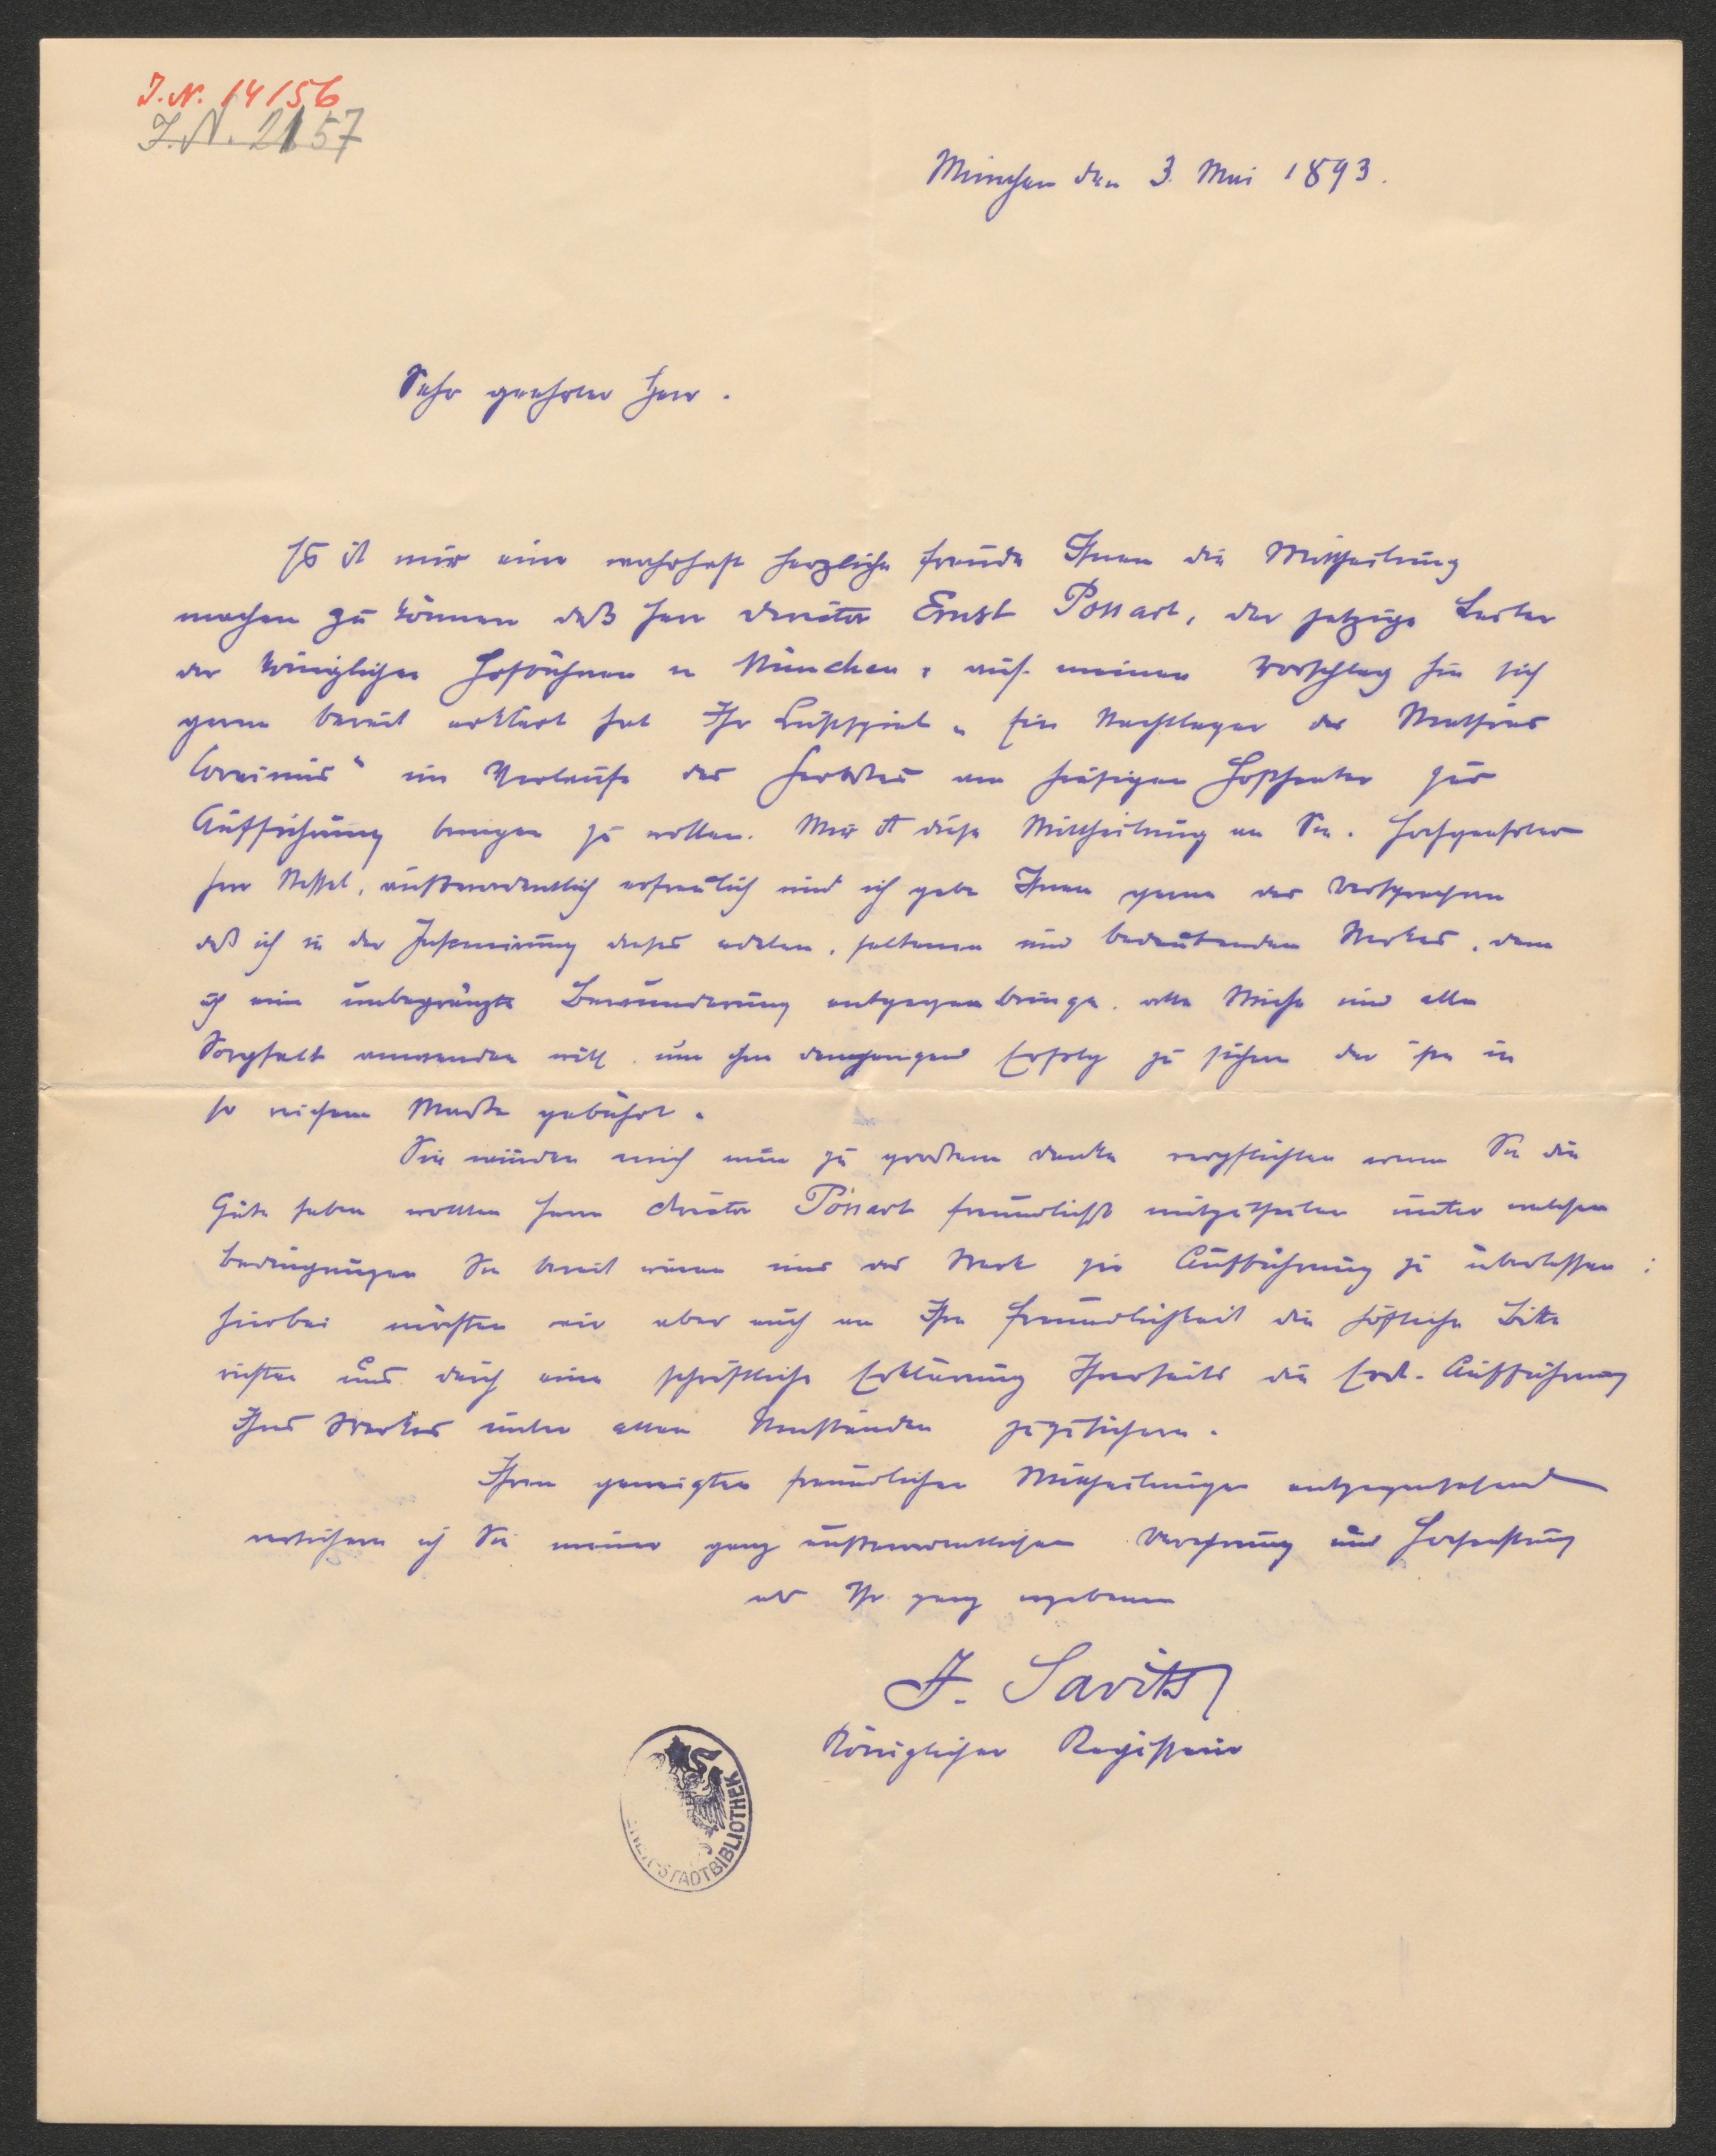 J.N. 14156
J.N. 2157
München den 3. Mai 1893.
Sehr geehrter Herr.
Es ist mir eine wahrhaft herzliche Freude Ihnen die Mittheilung
machen zu können daß Herr Direktor Ernst Possart, der jetzige Leiter
der königlichen Hofbühnen in München, auf meinen Vorschlag hin sich
gerne bereit erklärt hat Ihr Lustspiel „Ein Nachtlager des Mathias
Corvinus“ im Verlaufe des Herbstes am hiesigen Hoftheater zur
Aufführung bringen zu wollen. Mir ist diese Mittheilung an Sie, hochgeehrter
Herr Nissel, außerordentlich erfreulich und ich gebe Ihnen gerne das Versprechen
daß ich in der Inscenirung dieses edelen, seltenen und bedeutenden Werkes, dem
ich eine unbegränzte Bewunderung entgegen bringe, alle Mühe und alle
Sorgfalt anwenden will, um ihm denjenigen Erfolg zu sichern der ihm in
so reichem Maße gebührt.
Sie würden mich nun zu großem Danke verpflichten wenn Sie die
Güte haben wollten Herrn Direktor Possart freundlichst mitzutheilen unter welchen
Bedingungen Sie bereit wären uns das Werk zur Aufführung zu überlassen;
hierbei möchten wir aber auch an Ihre Freundlichkeit die höfliche Bitte
richten uns durch eine schriftliche Erklärung Ihrerseits die Erst-Aufführung
Ihres Werkes unter allen Umständen zuzusichern.
Ihren geneigten freundlichen Mittheilungen entgegensehend
versichere ich Sie meiner ganz außerordentlichen Verehrung und Hochachtung
als Ihr ganz ergebener
J. Savits
Königlicher Regisseur
STADTBIBLIOTHEK